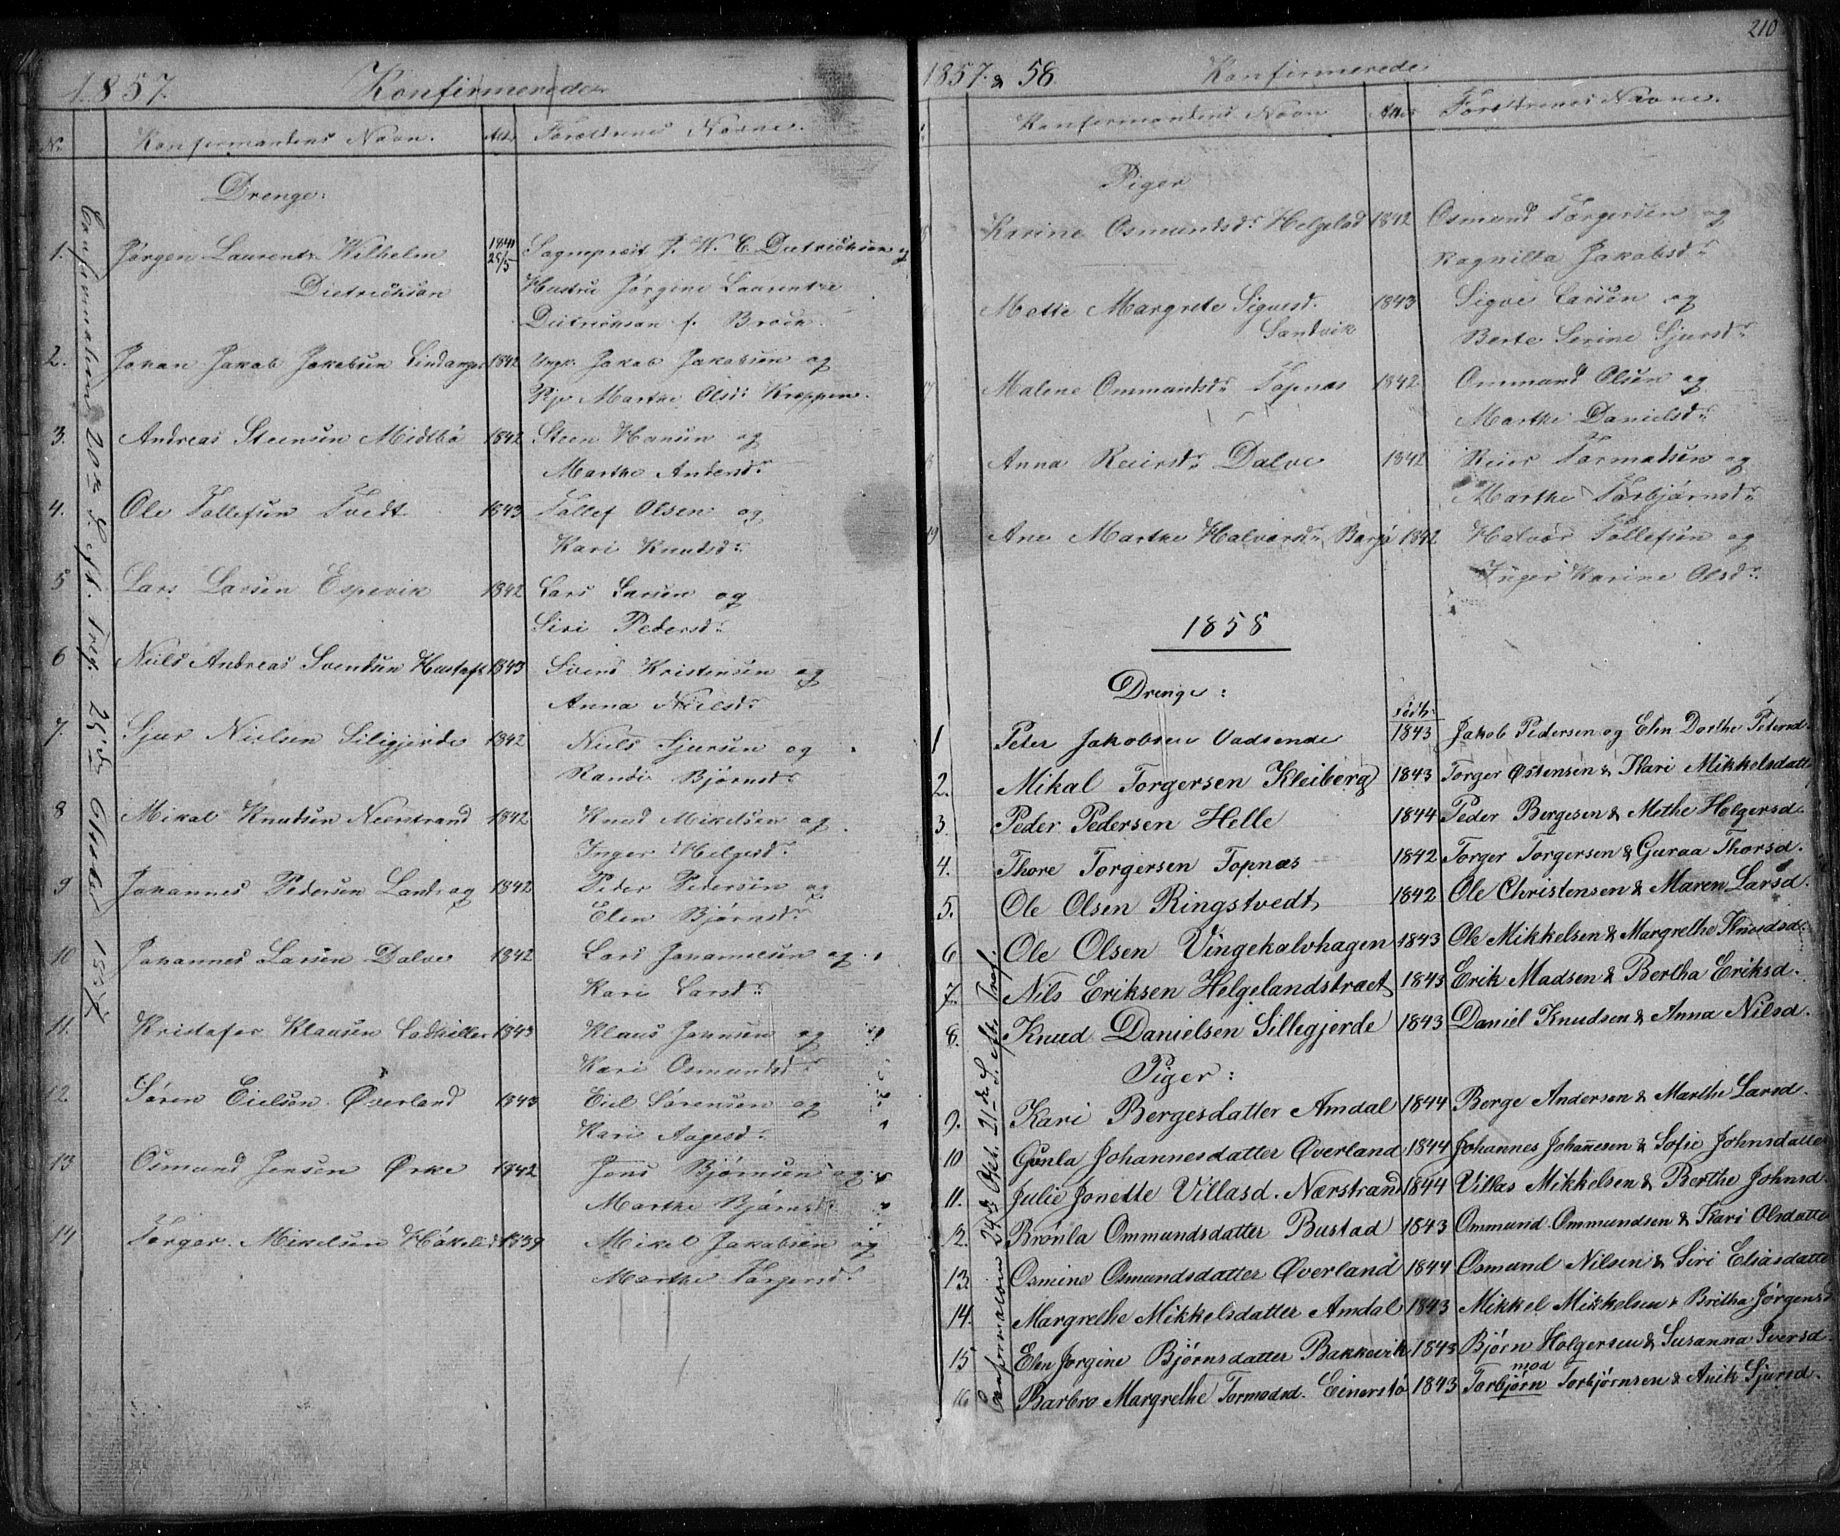 1857.
Konfirmerede
No
Konfirmandens Navn.
Alder
Forældrenes Navne.
Drenge:
Confirmation 20de S. eft. Tref. 25de October 1857
1. Jørgen Laurents Wilhelm 1841 25/5 Sognepræst J. W. C. Dietrichson og
Dietrichson Hustru Jørgine Laurentze
Dietrichson f. Broch.
2. Johan Jakob Jakobsen Lindanger 1842 Ungk. Jakob Jakobsen og
Pige Marthe Olsdr
3. Andreas Steensen Midtbø 1842 Steen Hansen og
Marthe Andersdr
4. Ole Tollefsen Tvedt 1843 Tollef Olsen og
Kari Knudsdr
5 Lars Larsen Espevik 1842 Lars Larsen og
Siri Pedersdr
6 Niels Andreas Svendsen 1843 Svend Kristensen og
Anna Nielsdr
7. Sjur Nielsen Siligjerde 1842 Niels Sjursen og
Randi Bjørnsdr
8 Mikal Knudsen Nerstrand 1842 Knud Mikelsen og
Inger Helgesd.
9 Johannes Pedersen 1842 Peder Pedersen og
Elen Bjørnsdr
10 Johannes Larsen Dalve 1842 Lars Johannesen og
Kari Larsdr
11. Kristofer Klausen 1843 Klaus Johnsen og
Kari Osmundsdr
12 Søren Eielsen Øverland 1843 Eiel Sørensen og
Kari Aagesdr
13 Osmund Jensen Ørke 1842 Jens Bjørnsen og
Marthe Bjørnsdr
14 Torger Mikelsen 1839 Mikel Jakobsen og
Marthe Torgersdr
210
1857. & 58
Konfirmerede
Konfirmandens Navn
Alder
Forældrenes Navne.
Piger
Karine Osmundsdr Helgelad 1842 Osmund Torgersen og
Ragnilla Jakobsdr
Mette Margrete Sigvesd. 1843 Sigve Larsen og
Sandvik Berte Serine Sjursdr
Malene Ommundsdr Topnæs 1842 Ommund Olsen og
Marthe Danielsdr
8 Anna Reiersdr Dalve 1842 Reier Tormodsen og
Marthe Torbjørnsdr
19 Ane Marthe Halvorsdr Borgø 1842 Halvor Tollefsen og
Inger Karine Olsdr
1858
Drenge:
Født.
Confirmation 24de Oct. 21de S. efter Tref.
1 Peter Jakobsen Vadsende 1843 Jakob Pedersen og Elen Dorthe Petersd.
2. Mikal Torgersen Kleiberg 1843 Torger Østensen & Kari Mikkelsdatter
3. Peder Pedersen Helle 1844 Peder Bergesen & Methe Holgersd.
4. Thore Torgersen Topnæs 1842 Torger Torgersen & Guroa Thorsd.
5. Ole Olsen Ringstvedt 1842 Ole Christensen & Maren Larsd.
6 Ole Olsen Vingekalvhagen 1843 Ole Mikkelsen & Margrethe Knudsd.
7. Nils Eriksen Helgelandstræet 1843 Erik Madsen & Bertha Eriksd.
8. Knud Danielsen Sillegjerde 1843 Daniel Knudsen & Anna Nilsd.
Piger:
9. Kari Bergesdatter Amdal 1844 Berge Andersen & Marthe Larsd.
10 Gunla Johannesdatter Øverland 1844 Johannes Johannesen & Sofie Johnsdatter
11. Julie Jonette Villasd. Nærstrand 1844 Villas Mikkelsen & Berthe Johnsd.
12. Brønla Ommundsdatter Bustad 1843 Ommund Ommundsen & Kari Olsdatter
13. Osmine Osmundsdatter Øverland 1844 Osmund Nilsen & Siri Eliasdatter
14. Margrethe Mikkelsdatter Amdal 1843 Mikkel Mikkelsen & Britha Jørgensd.
15 Elen Jørgine Bjørnsdatter Bakkevik 1843 Bjørn Holgersen & Susanna Iversd.
mod
16 Barbro Margrethe Tormodsd. Einerstø 1843 Torbjørn Torbjørnsen & Anik Sjursd.